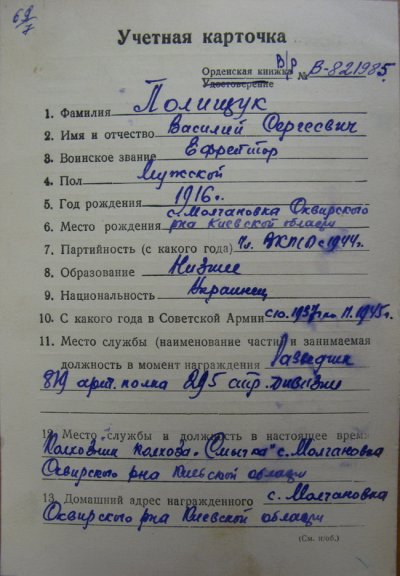 Учетная карточка
Орденская книжка В/р
Удостоверение № В-821985.
1. Фамилия Полищук
2. Имя и отчество Василий Сергеевич
3. Воинское звание Ефрейтор
4. Пол Мужской
5. Год рождения 1916 г.
с. Молчановка Сквирского
6. Место рождения р-на Киевской области
7. Партийность (с какого года) Чл. ВКП(б) с 1944 г.
8. Образование Низшее
9. Национальность Украинец
10. С какого года в Советской Армии с 10.1937 по 11.1945 г.
11. Место службы (наименование части) и занимаемая
должность в момент награждения Разведчик
819 арт. полка 295 стр. дивизии
12. Место службы и должность в настоящее время
Колхозник колхоза "Смычка" с. Молчановка
Сквирского р-на Киевской области
13. Домашний адрес награжденного с. Молчановка
Сквирского р-на Киевской области
(См. н/об.)